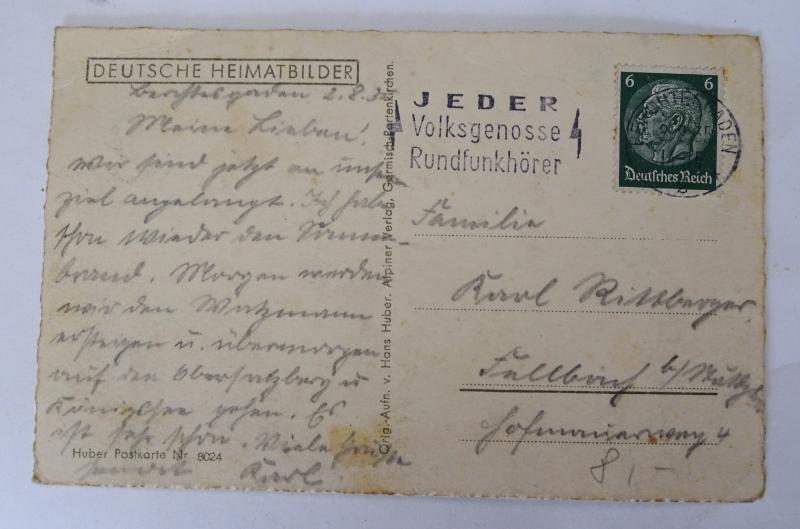 DEUTSCHE HEIMATBILDER
Berchtesgaden 2.8.
Meine Lieben!
Wir sind jetzt an unserem
Ziel angelangt. Ich habe
schon wieder den Sonnen-
brand. Morgen werden
wir den Watzmann
ersteigen u. übermorgen
auf den Obersalzberg u
Königssee gehen. Es
ist sehr schön. Viele Grüße
sendet Karl.
Huber Postkarte Nr. 8024
Orig.-Aufn. v. Hans Huber. Alpiner Verlag, Garmisch-Partenkirchen.
JEDER
Volksgenosse
Rundfunkhörer
6 6
Deutsches Reich
BERCHTESGADEN
Familie
Karl Rittberger
Fellbach b/
Hofmauerweg 4
8,-